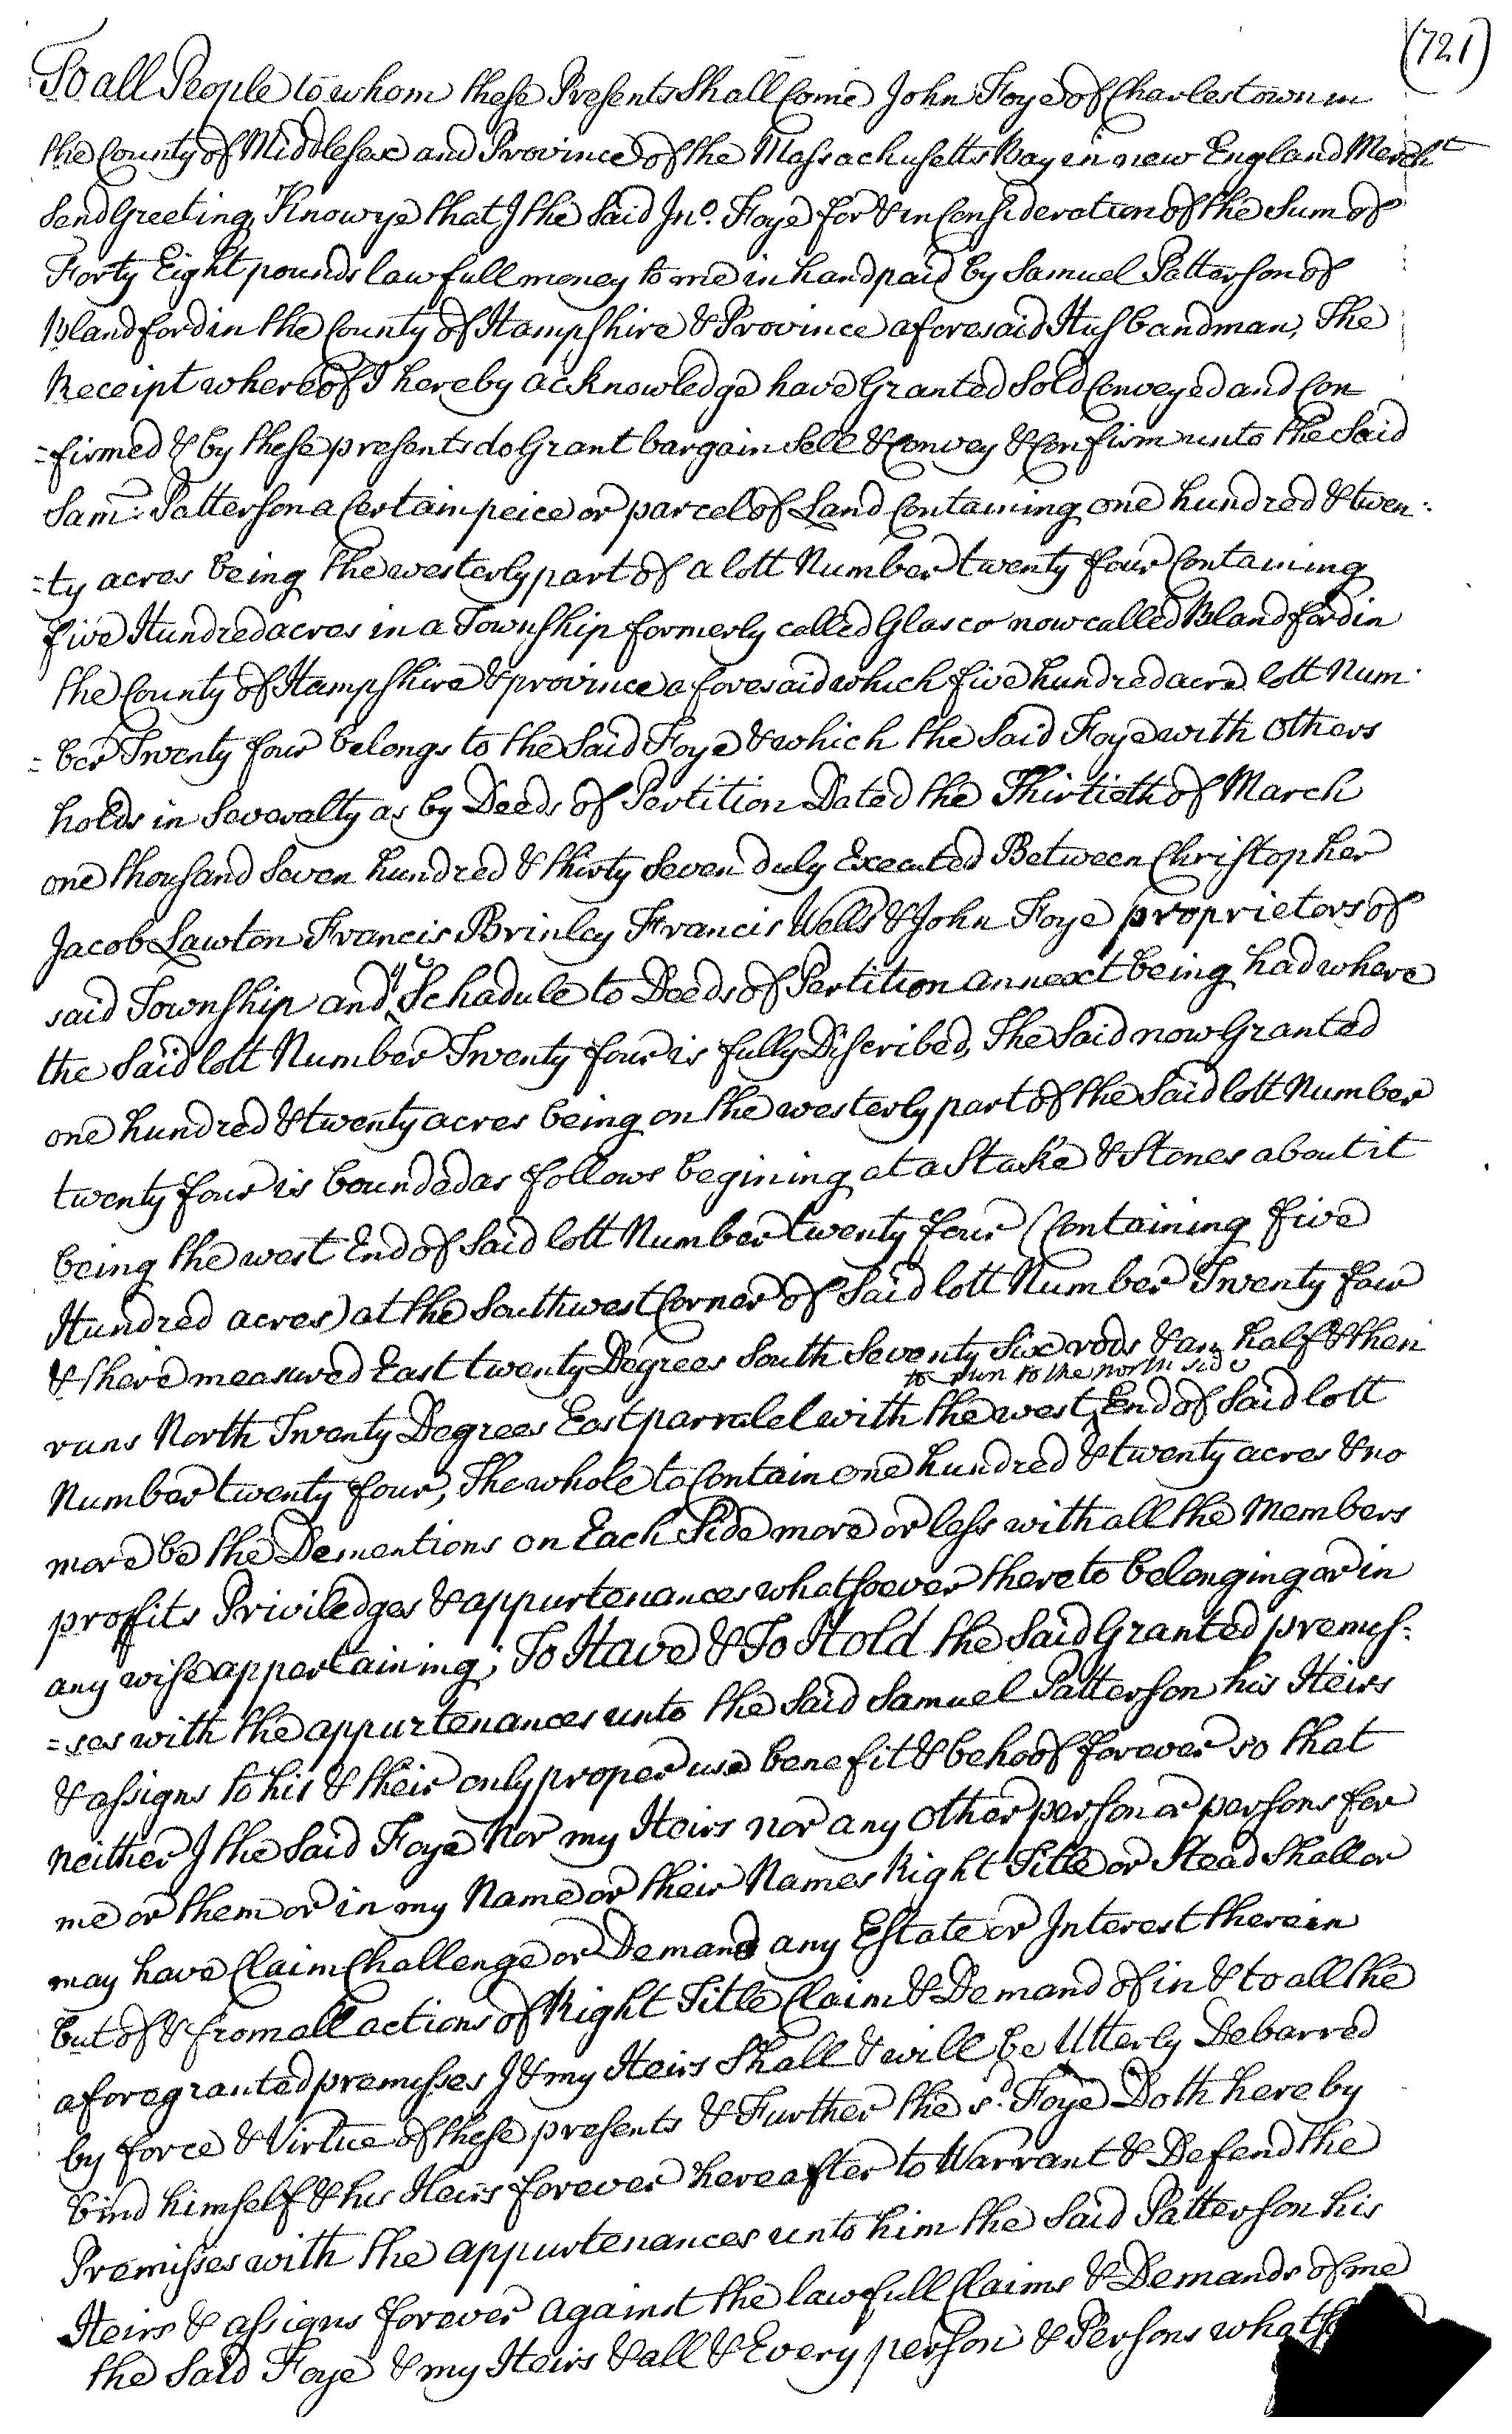 (721)
To all People to whom these Presents Shall Come John Foye of Charlestown in
the County of Middlesex and Province of the Massachusetts Bay in new England Mercht
Send Greeting Know ye that I the Said Jno. Foye for & in Consideration of the Sum of
Forty Eight pounds lawfull money to me in hand paid by Samuel Patterson of
Blandford in the County of Hampshire & Province aforesaid Husbandman, The
Receipt whereof I hereby acknowledge have Granted Sold Conveyed and Con
=firmed & by these presents do Grant bargain Sell & Convey & Confirm unto the Said
Sam: Patterson a Certain peice or parcel of Land Containing one hundred & twen:
=ty acres being the westerly part of a lott Number twenty four Containing
five Hundred acres in a Township formerly called Glasco now called Blandford in
the County of Hampshire & province aforesaid which five hundred acre lott Num
=ber Twenty four belongs to the Said Foye & which the Said Foye with others
holds in Severalty as by Deeds of Pertition Dated the Thirtieth of March
one thousand Seven hundred & thirty Seven duly Executed Between Christopher
Jacob Lawton Francis Brinley Francis Wells & John Foye proprietors of
said Township and ye Schadule to Deeds of Pertition annext being had where
the Said lott Number Twenty four is fully Discribed, The Said now Granted
one hundred & twenty acres being on the westerly part of the Said lott Number
twenty four is bounded as follows begining at a Stake & Stones about it
being the west End of Said lott Number twenty four (Containing five
Hundred acres) at the Southwest Corner of Said lott Number Twenty four
& there measured East twenty Degrees South Seventy Six rods & an half & then
to run to the north side
runs North Twenty Degrees East parralel with the west End of Said lott
Number twenty four, The whole to Contain one hundred & twenty acres & no
more be the Dementions on Each Side more or less with all the Members
proffits Priviledges & appurtenances whatsoever thereto belonging or in
any wise appertaining; To Have & To Hold the Said Granted premis:
=ses with the appurtenances unto the Said Samuel Patterson his Heirs
& assigns to his & their only proper use benefit & behoof forever so that
neither I the Said Foye nor my Heirs nor any other person or persons for
me or them or in my Name or their Names Right Title or Stead Shall or
may have Claim Challenge or Demand any Estate or Interest therein
but of & from all actions of Right Title Claim & Demand of in & to all the
aforegranted premisses I & my Heirs Shall & will be Utterly Debarred
by force & Virtue of these presents & Further the sd. Foye Doth hereby
bind himself & his Heirs forever hereafter to Warrant & Defend the
Premisses with the appurtenances unto him the Said Patterson his
Heirs & assigns forever against the lawfull Claims & Demands of me
the Said Foye & my Heirs & all & Every person & Persons